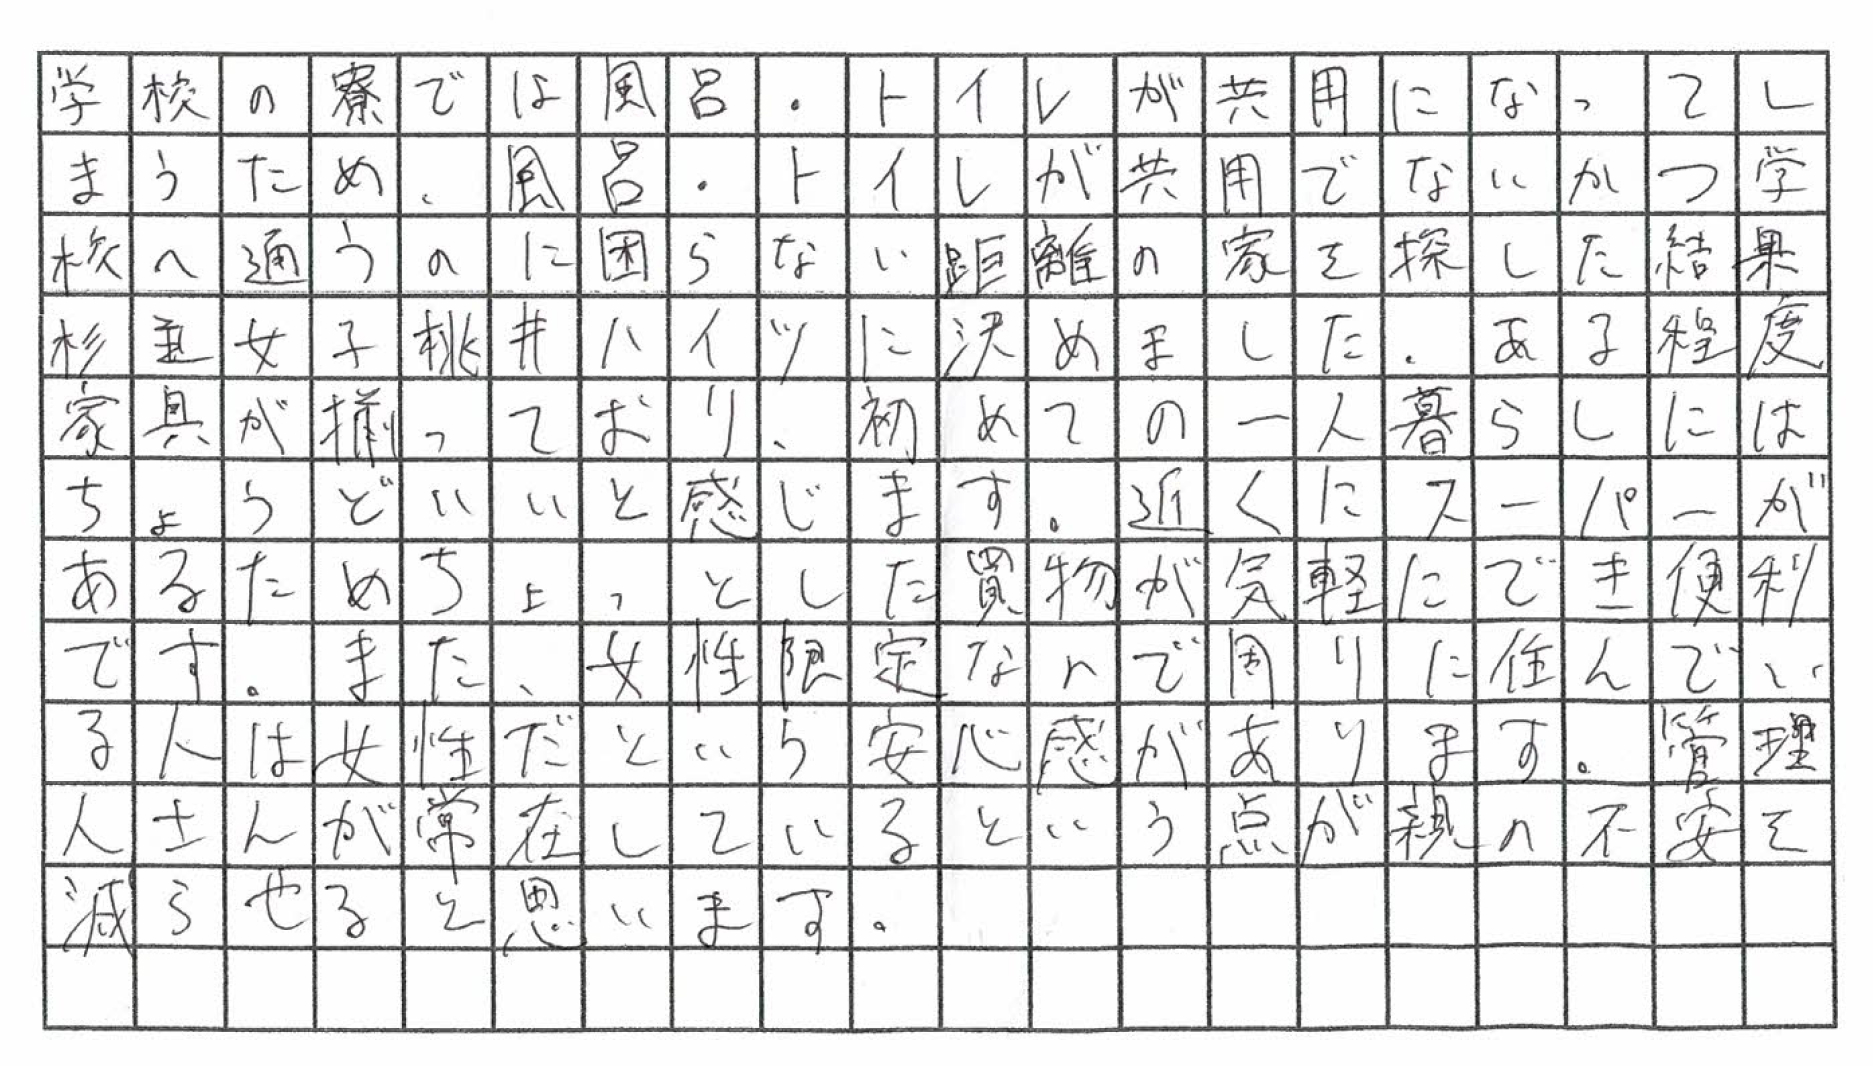 学校の寮では風呂・トイレが共用になってし
まうため、風呂・トイレが共用でないかつ学
校へ通うのに困らない距離の家を探した結果
杉並女子桃井ハイツに決めました。ある程度
家具が揃っており、初めての一人暮らしには
ちょうどいいと感じます。近くにスーパーが
あるためちょっとした買物が気軽にでき便利
です。また、女性限定なので周りに住んでい
る人は女性だという安心感があります。管理
人さんが常在しているという点が親の不安を
減らせると思います。